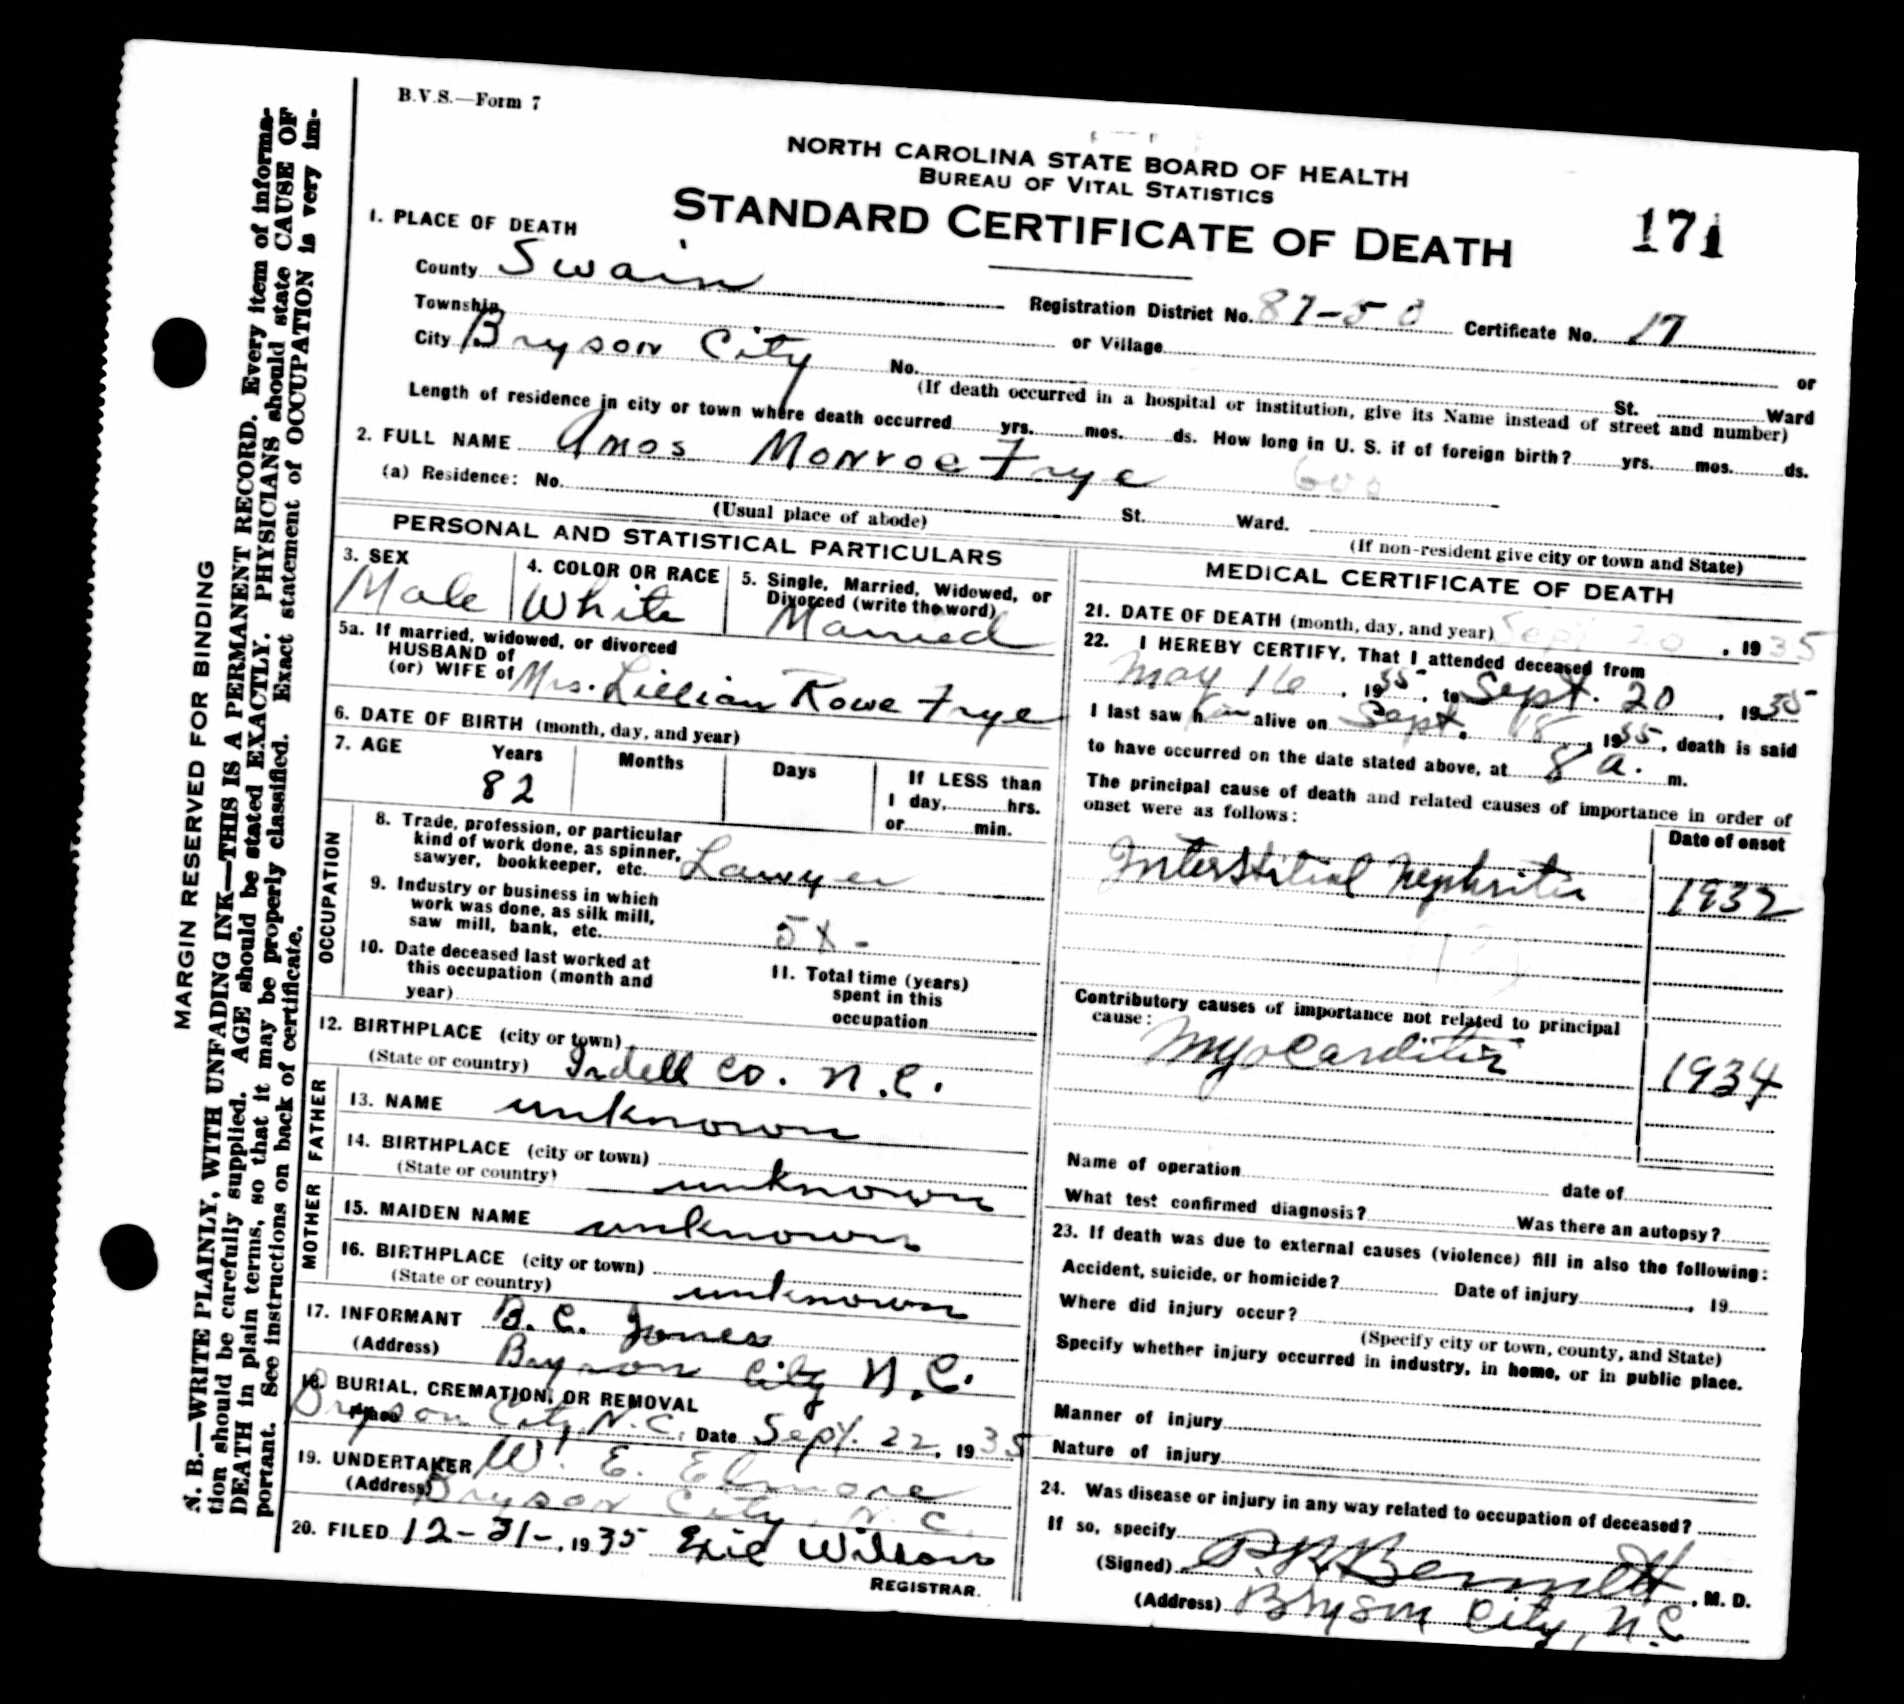 B.V.S.—Form 7
NORTH CAROLINA STATE BOARD OF HEALTH
BUREAU OF VITAL STATISTICS
STANDARD CERTIFICATE OF DEATH
171
1. PLACE OF DEATH
County Swain
Registration District No. 87-50 Certificate No. 17
Township or Village or
City Bryson City No. St. Ward
(If death occurred in a hospital or institution, give its Name instead of street and number)
Length of residence in city or town where death occurred yrs. mos. ds. How long in U. S. if of foreign birth? yrs. mos. ds.
2. FULL NAME Amos Monroe Frye
(a) Residence: No. St. Ward.
(Usual place of abode) (If non-resident give city or town and State)
PERSONAL AND STATISTICAL PARTICULARS
3. SEX
Male
4. COLOR OR RACE
White
5. Single, Married, Widowed, or
Divorced (write the word)
Married
5a. If married, widowed, or divorced
HUSBAND of
(or) WIFE of Mrs. Lillian Rowe Frye
6. DATE OF BIRTH (month, day, and year)
7. AGE Years Months Days If LESS than
82 1 day, hrs.
or min.
OCCUPATION
8. Trade, profession, or particular
kind of work done, as spinner,
sawyer, bookkeeper, etc. Lawyer
9. Industry or business in which
work was done, as silk mill,
saw mill, bank, etc. 5X-
10. Date deceased last worked at
this occupation (month and
year)
11. Total time (years)
spent in this
occupation
12. BIRTHPLACE (city or town)
(State or country) Irdell Co. N.C.
FATHER
13. NAME unknown
14. BIRTHPLACE (city or town)
(State or country) unknown
MOTHER
15. MAIDEN NAME unknown
16. BIRTHPLACE (city or town)
(State or country) unknown
17. INFORMANT B. C. Jones
(Address) Bryson City N.C.
18. BURIAL, CREMATION, OR REMOVAL
Place Bryson City, N.C. Date Sept. 22, 1935
19. UNDERTAKER W. E. Elmore
(Address) Bryson City, N.C.
20. FILED 12-31-, 1935 Wilson
REGISTRAR.
MEDICAL CERTIFICATE OF DEATH
21. DATE OF DEATH (month, day, and year) Sept 20, 1935
22. I HEREBY CERTIFY, That I attended deceased from
May 16, 1935, to Sept. 20, 1935
I last saw him alive on Sept. 18, 1935, death is said
to have occurred on the date stated above, at 8 a. m.
The principal cause of death and related causes of importance in order of
onset were as follows:
Date of onset
Interstitial Nephritis 1932
Contributory causes of importance not related to principal
cause:
Myocarditis 1934
Name of operation date of
What test confirmed diagnosis? Was there an autopsy?
23. If death was due to external causes (violence) fill in also the following:
Accident, suicide, or homicide? Date of injury , 19
Where did injury occur?
(Specify city or town, county, and State)
Specify whether injury occurred in industry, in home, or in public place.
Manner of injury
Nature of injury
24. Was disease or injury in any way related to occupation of deceased?
If so, specify
(Signed) P.R. Bennett, M. D.
(Address) Bryson City, N.C.
MARGIN RESERVED FOR BINDING
N. B.—WRITE PLAINLY, WITH UNFADING INK—THIS IS A PERMANENT RECORD. Every item of informa-
tion should be carefully supplied. AGE should be stated EXACTLY. PHYSICIANS should state CAUSE OF
DEATH in plain terms, so that it may be properly classified. Exact statement of OCCUPATION is very im-
portant. See instructions on back of certificate.